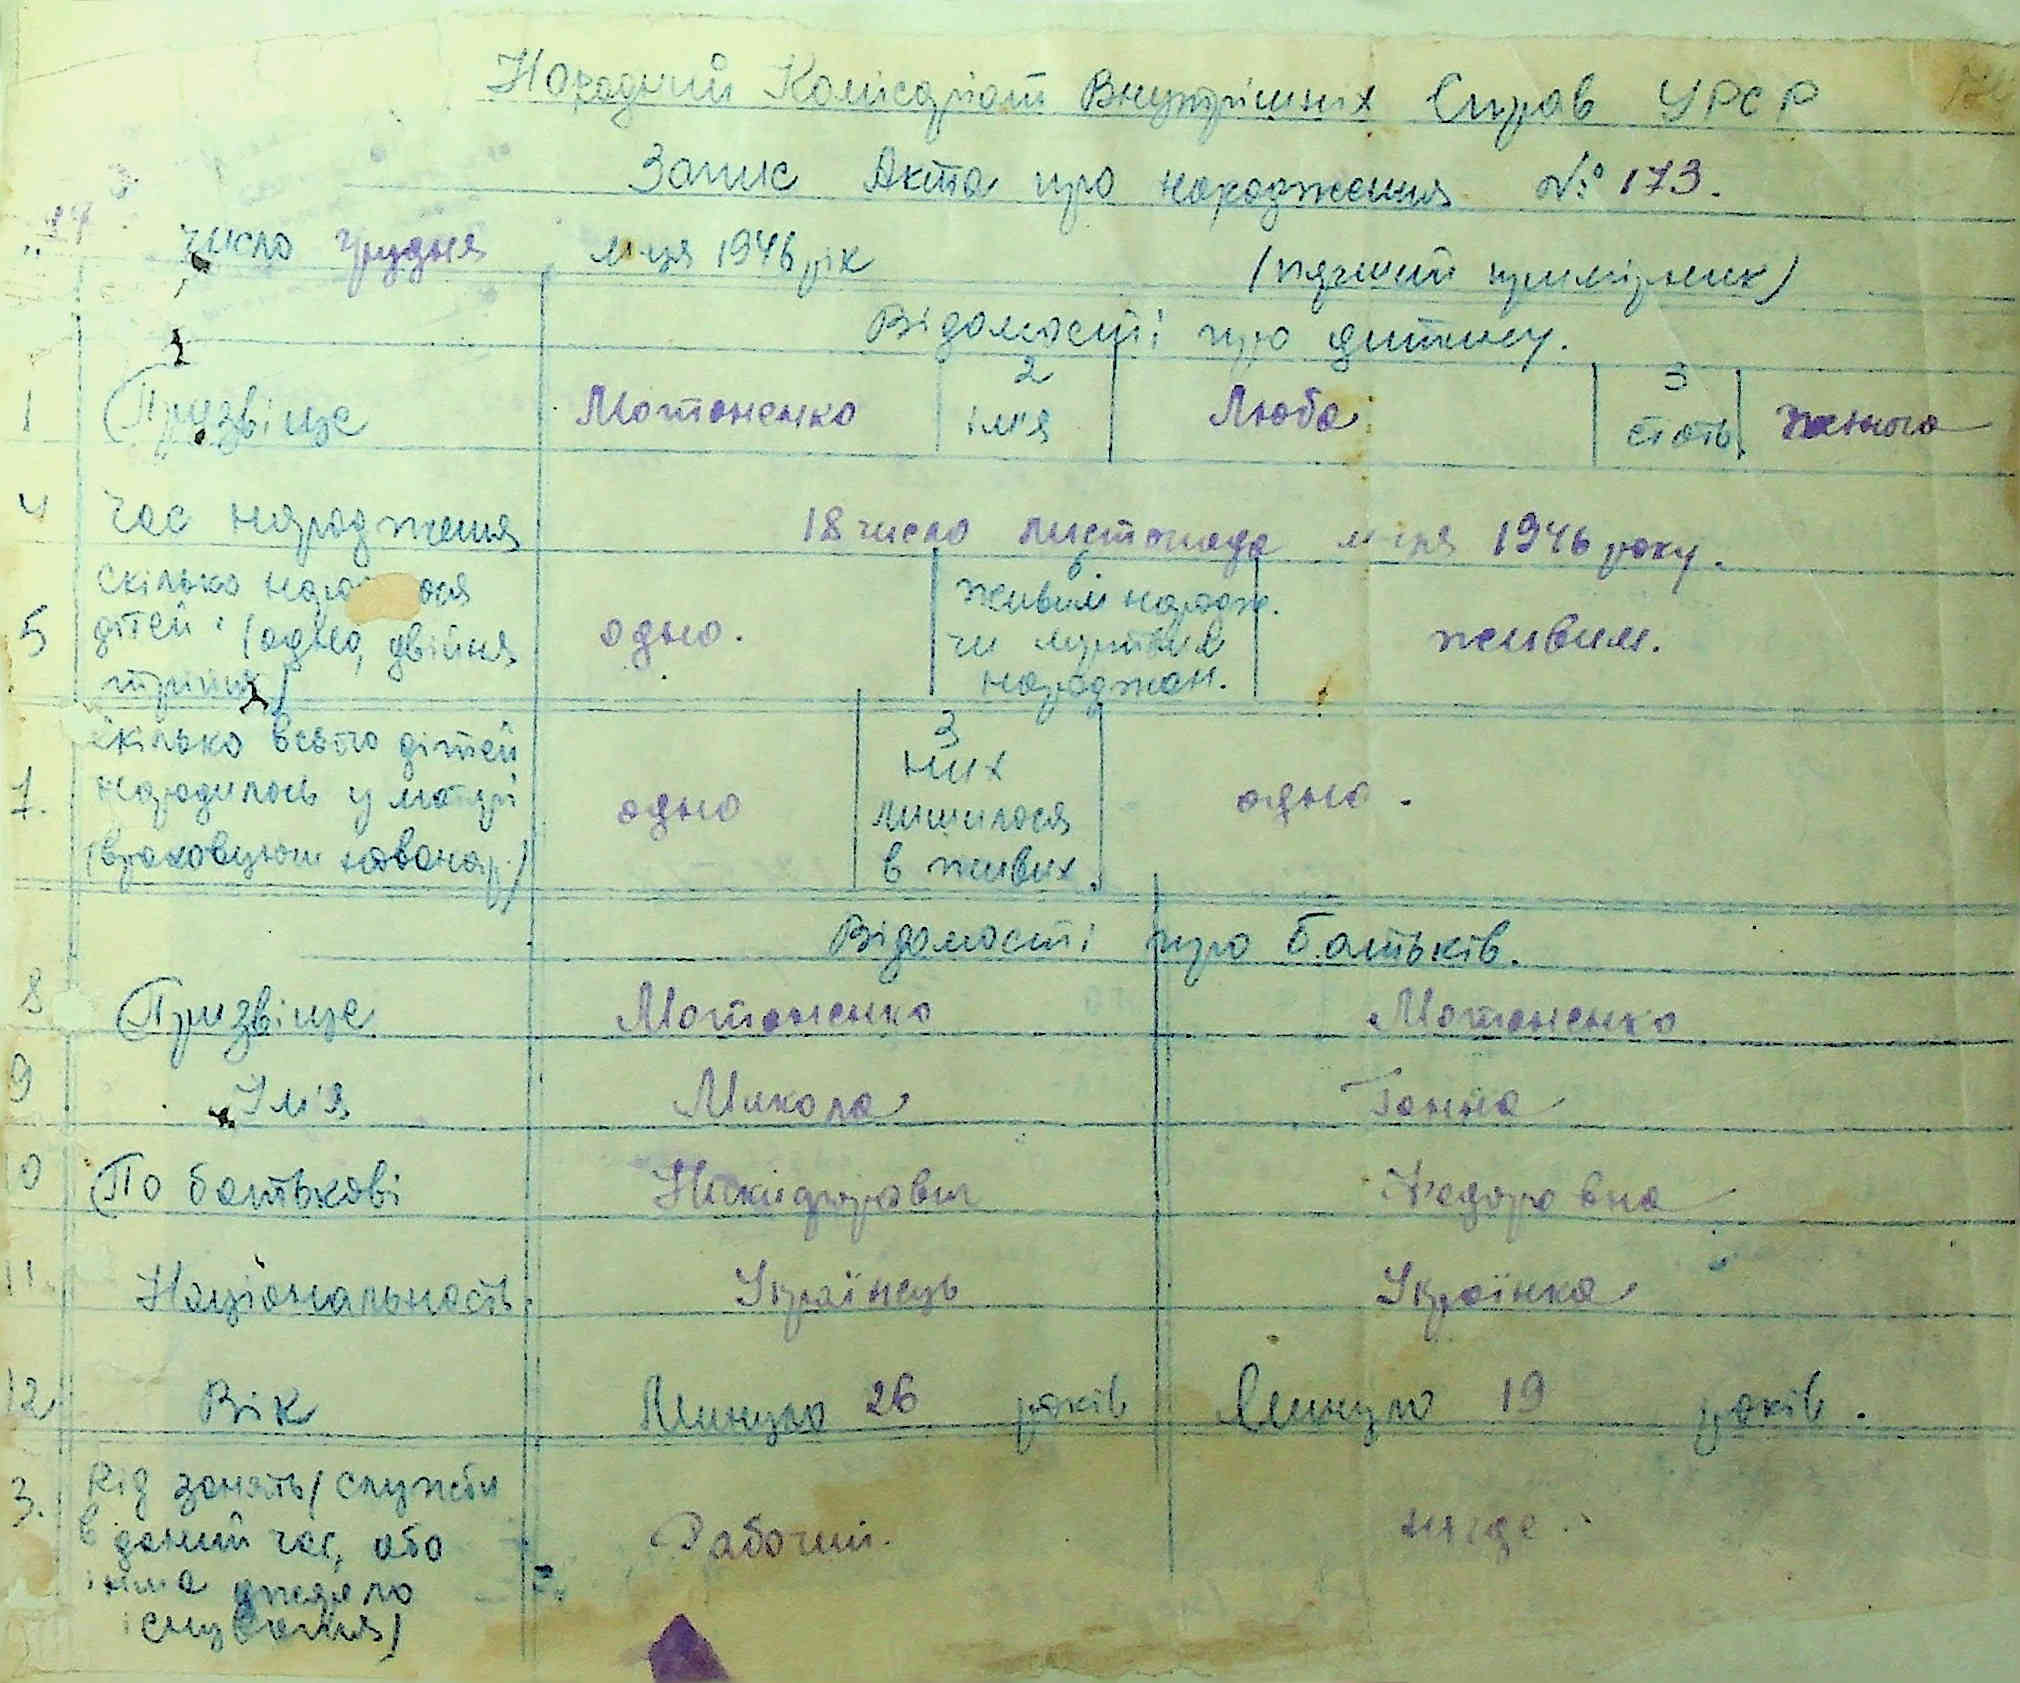 Народний Комісаріат Внутрішних Справ УРСР
Запис Акта про народження № 173.
число грудня м-ця 1946 рік (перший примірник)
Відомості про дитину.
1 Призвіще Мотоненко 2 ім'я Люба 3 стать жіноча
4 Час народження 18 число листопада м-ця 1946 року.
5 Скілько наро ося дітей (одно, двійня трійня) одно. 6 живим народж. чи мертвим народжен. живим.
7. скілько всього дітей народилось у матері (враховуючи одно З них лишилося в живих. одно.
Відомості про батьків.
8 Призвіще Мотоненко Мотоненко
9 Ім'я Микола Ганна
10 По батькові Никифорович Федоровна
11. Національность Українець Українка
12 Вік Минуло 26 років Минуло 19 років.
3. Рід занять (служби в даний час, або інше джерело існування) Рабочий. нигде.